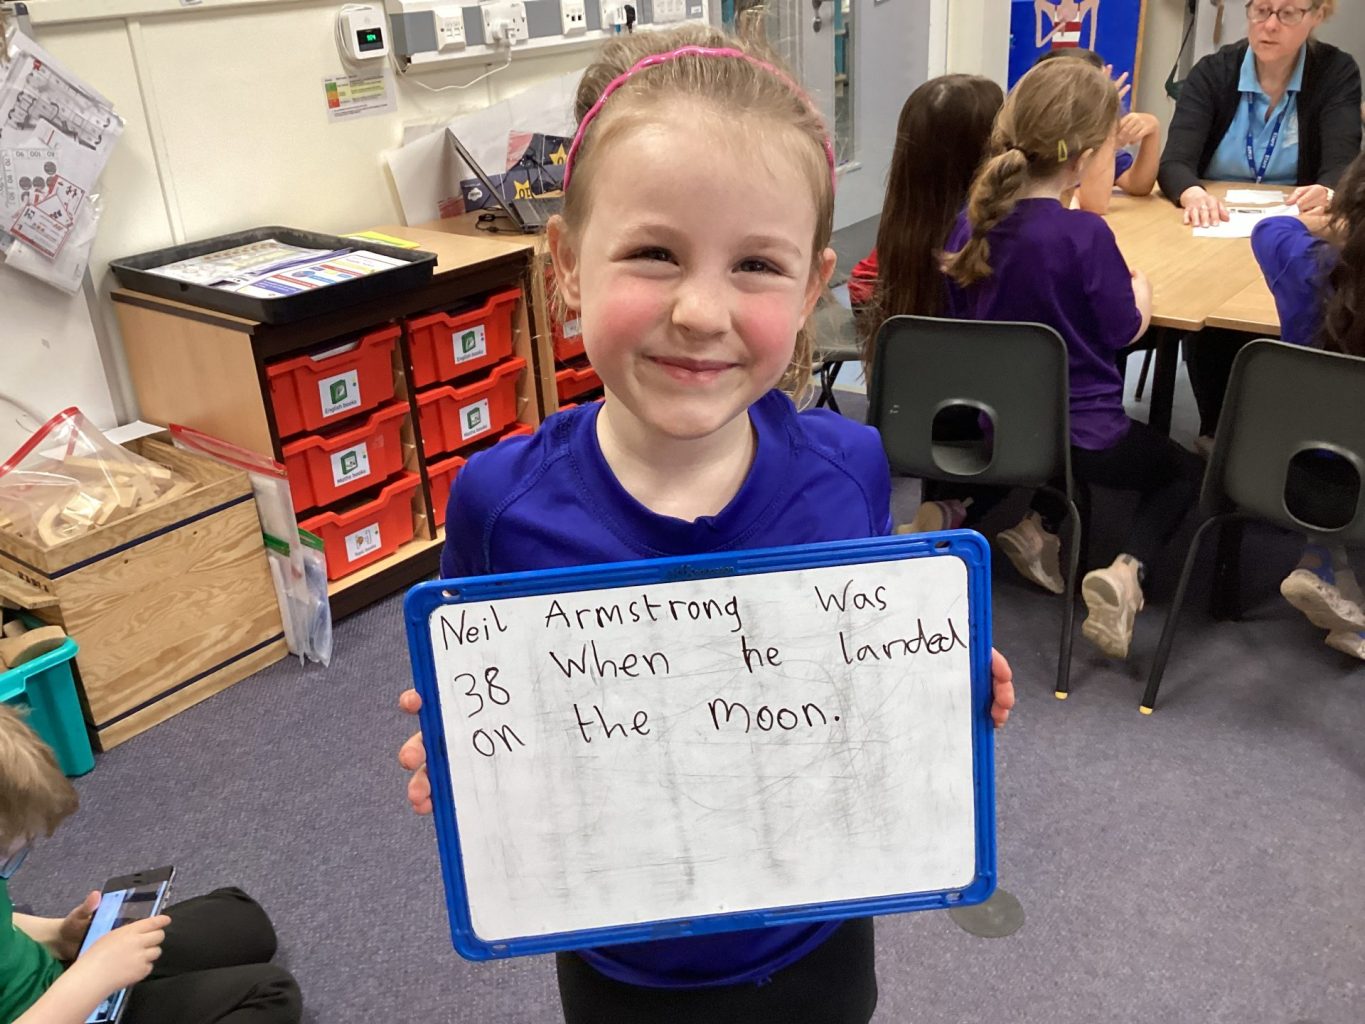 Neil Armstrong was
38 when he landed
on the moon.
English books
Maths books
Topic books
English books
Maths books